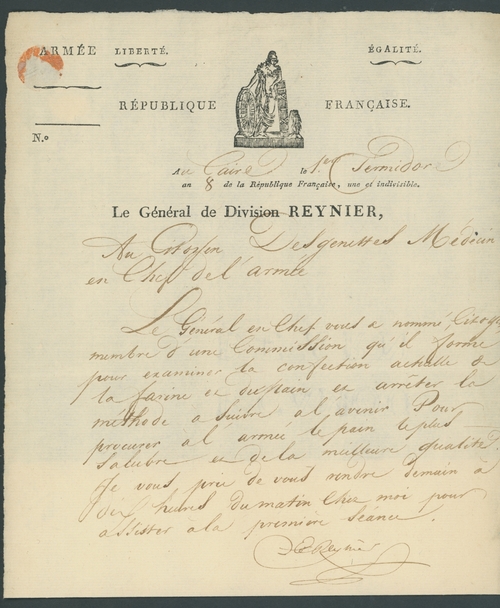 ARMÉE LIBERTÉ. ÉGALITÉ.
RÉPUBLIQUE FRANÇAISE.
N.o
Au Caire le 1.er Termidor
an 8 de la République Française, une et indivisible.
Le Général de Division REYNIER,
Au Citoyen Desgenettes Médecin
en Chef de l'armée
Le Général en Chef vous a nommé, Citoyen
membre d'une Commission qu'il forme
pour examiner la confection actuelle de
la farine et du pain et arrêter la
méthode a suivre a l'avenir Pour
procurer a l'armée le pain le plus
Salubre et de la meilleure qualité.
Je vous prie de vous rendre demain a
dix heures du matin Chez moi pour
assister a la première séance.
Reynier